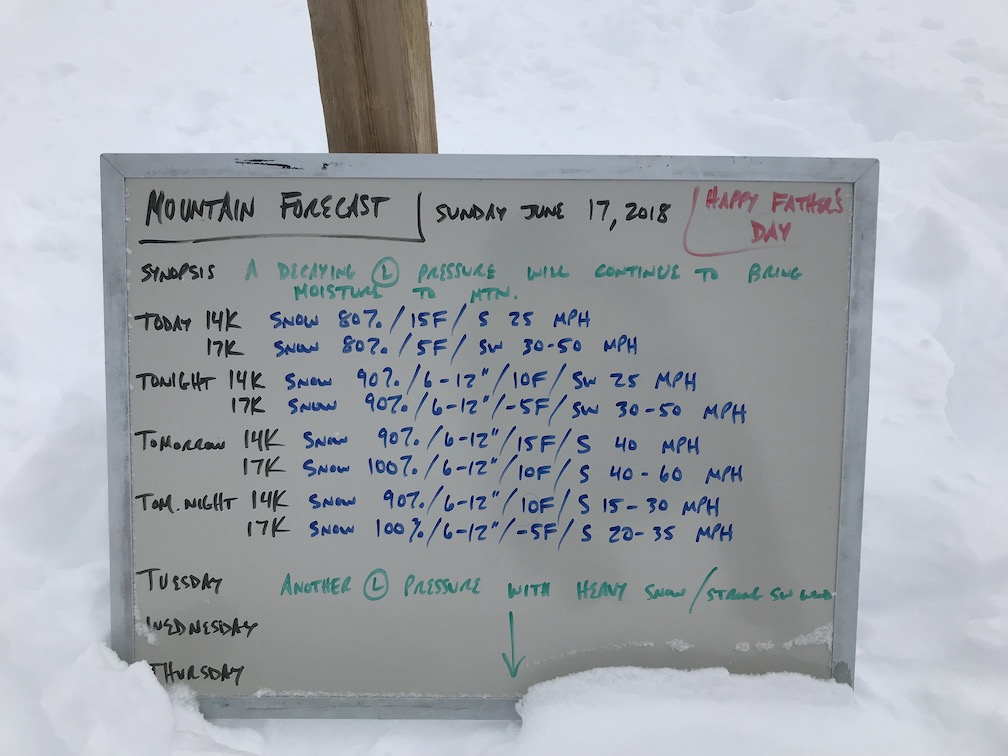 MOUNTAIN FORECAST SUNDAY JUNE 17, 2018 HAPPY FATHER'S
DAY
SYNOPSIS A DECAYING Ⓛ PRESSURE WILL CONTINUE TO BRING
MOISTURE TO MTN.
TODAY 14K SNOW 80%/15F/ S 25 MPH
17K SNOW 80%/5F/ SW 30-50 MPH
TONIGHT 14K SNOW 90%/6-12"/10F/ SW 25 MPH
17K SNOW 90%/6-12"/-5F/ SW 30-50 MPH
TOMORROW 14K SNOW 90%/6-12"/15F/ S 40 MPH
17K SNOW 100%/6-12"/10F/ S 40-60 MPH
TOM. NIGHT 14K SNOW 90%/6-12"/10F/ S 15-30 MPH
17K SNOW 100%/6-12"/-5F/ S 20-35 MPH
TUESDAY ANOTHER Ⓛ PRESSURE WITH HEAVY SNOW/STRONG SW WIND
WEDNESDAY
THURSDAY